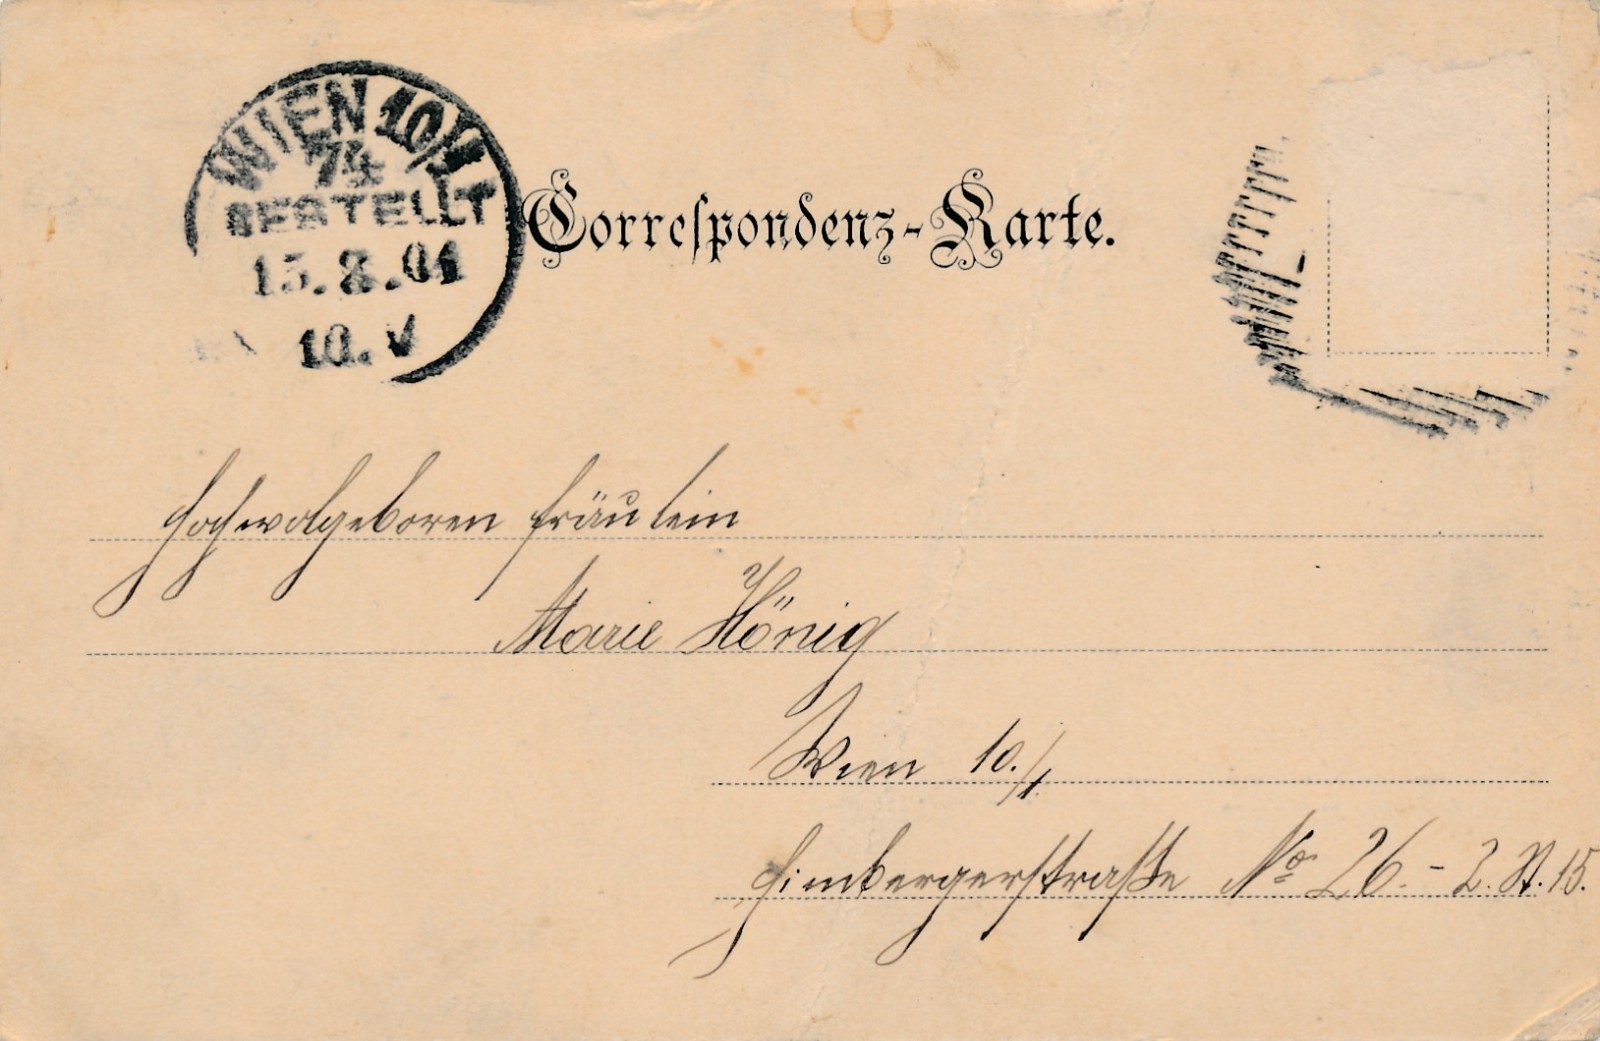 WIEN 10/1
74
BESTELLT
15.8.01
10.V
Correspondenz-Karte.
Hochwolgeboren Fräulein
Marie Hönig
Wien 10./1.
Himbergerstraße No 26. - 2. St. 15.